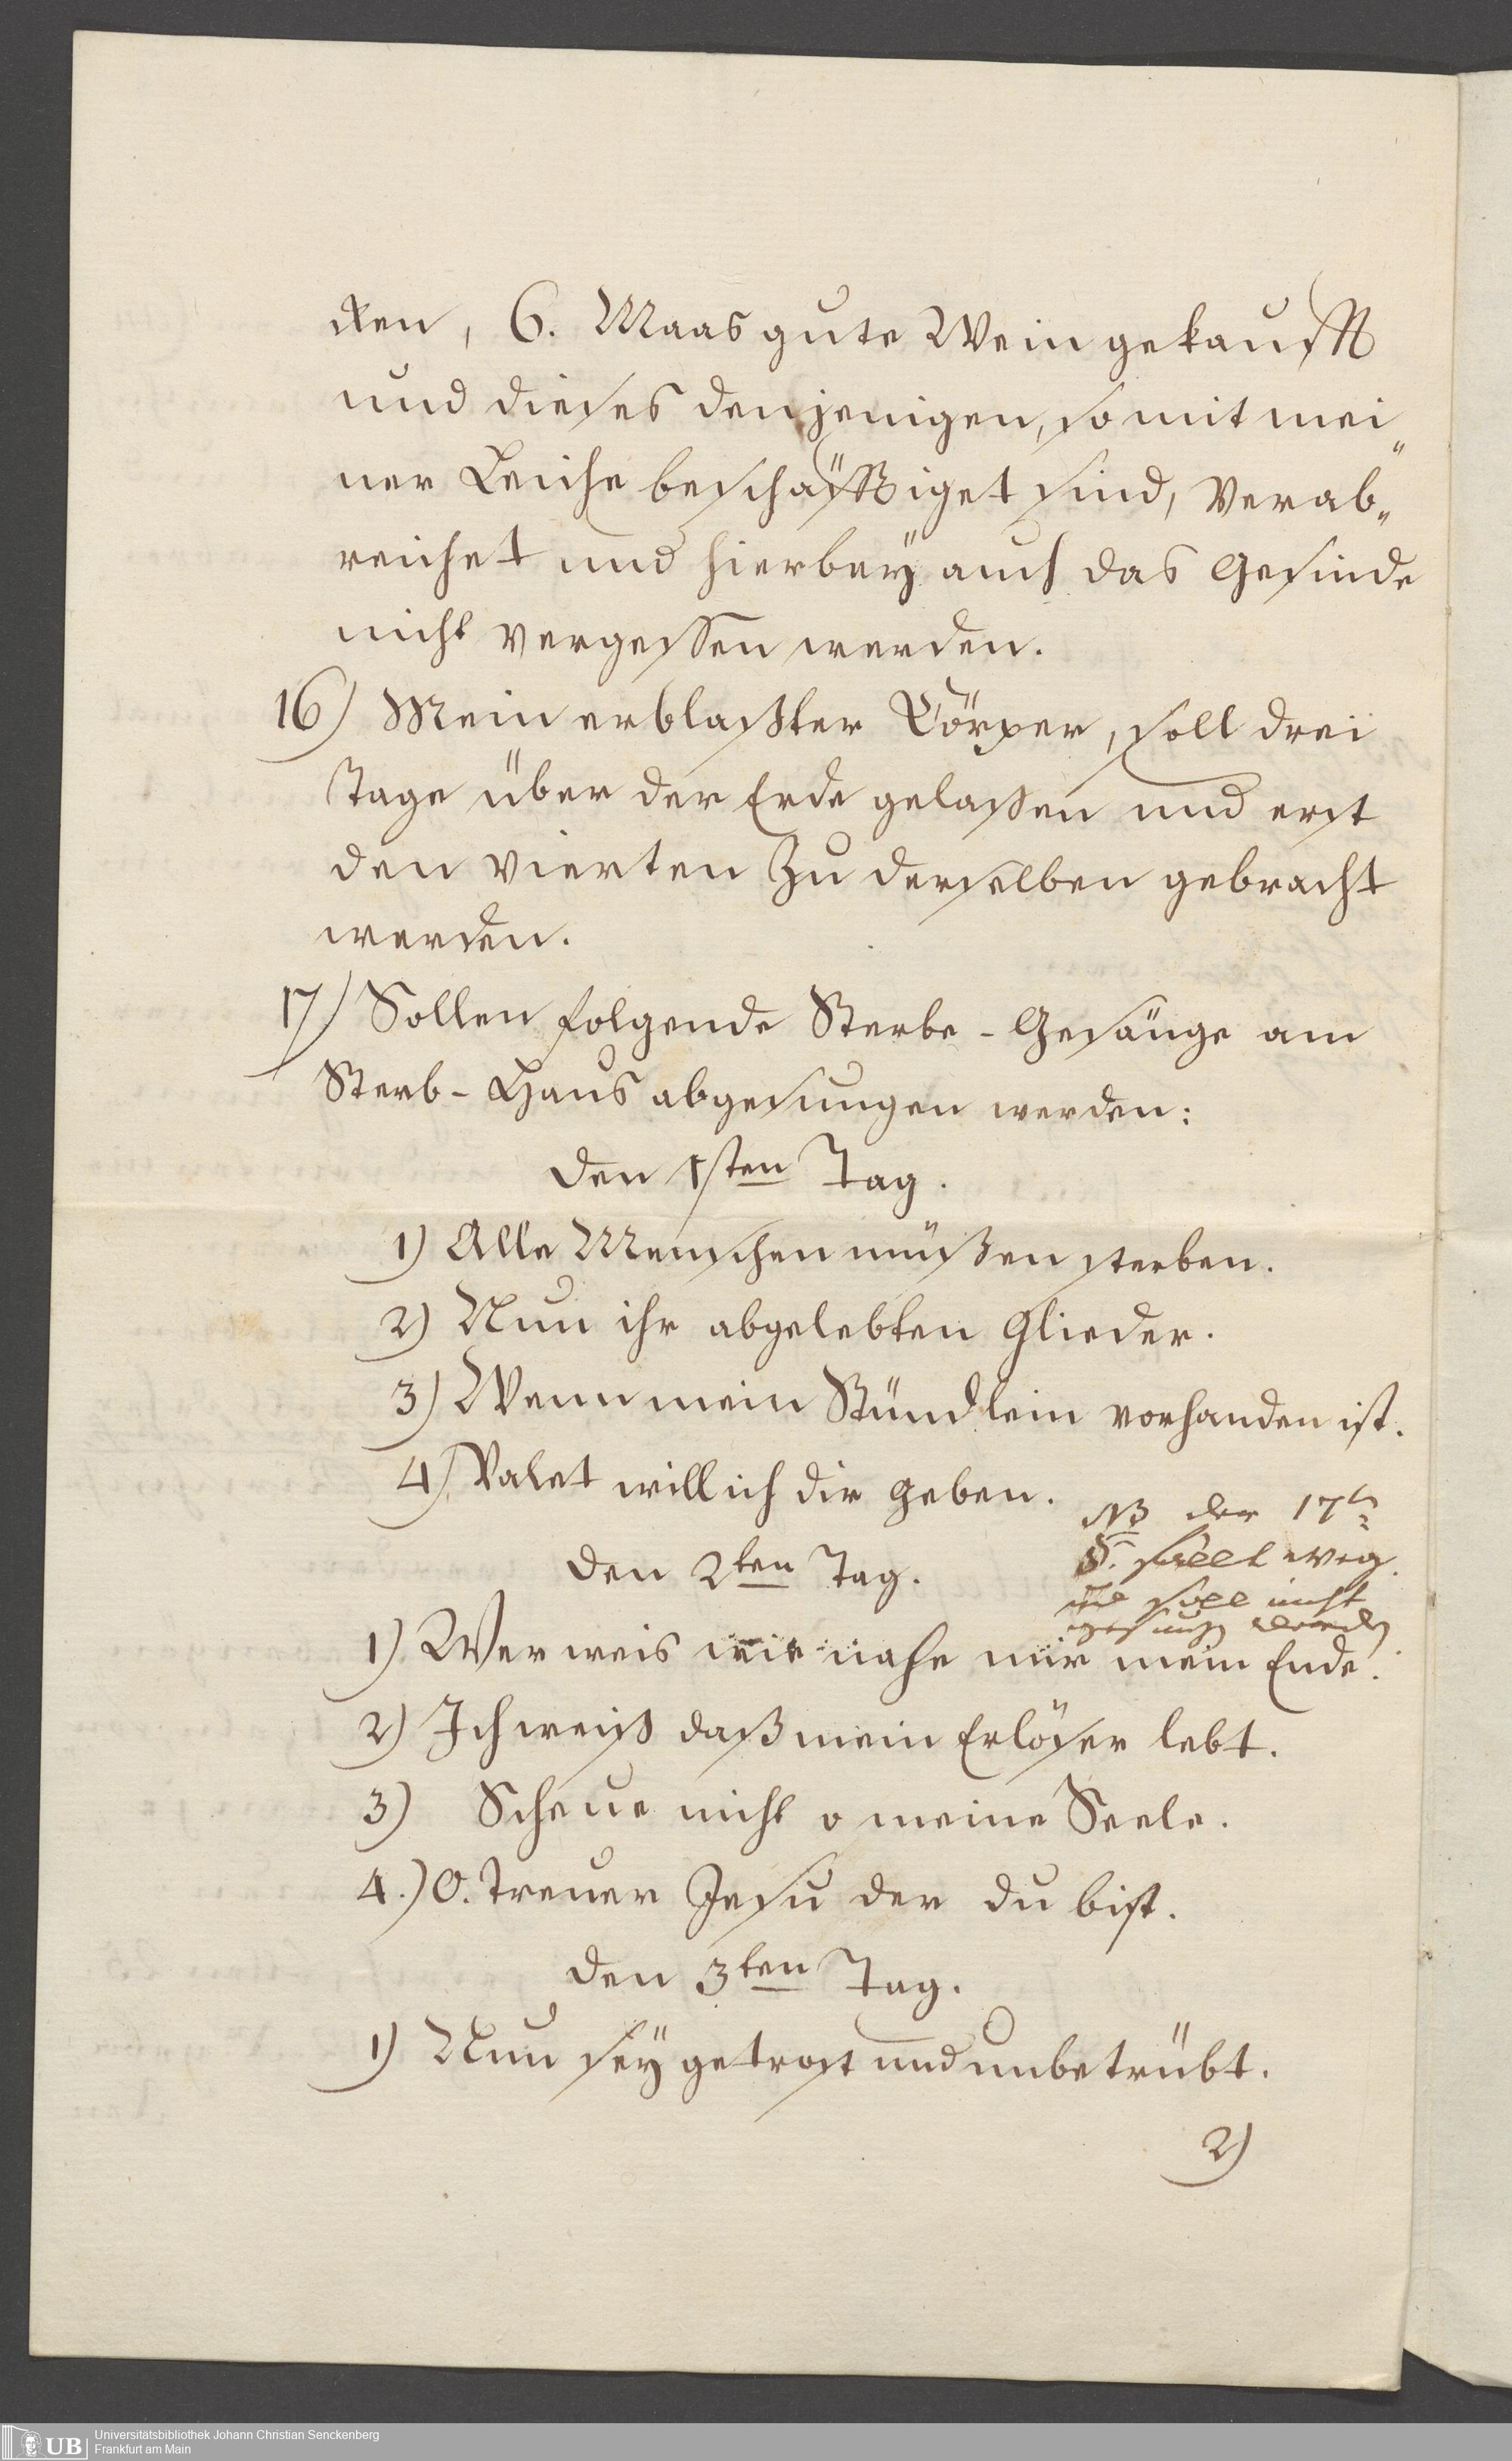 cken, 6. Maas gute Wein gekaufft
und dieses denjenigen, so mit mei„
ner Leiche beschäfftiget sind, verab„
reichet und hierbeÿ auch das Gesinde
nicht vergessen werden.
16) Mein erblaßter Cörper, soll drei
Tage über der Erde gelaßen und erst
den vierten zu derselben gebracht
werden.
17) Sollen folgende Sterbe-Gesänge am
Sterb-Haus abgesungen werden:
den 1sten Tag.
1) Alle Menschen müßen sterben.
2) Nun ihr abgelebten Glieder.
3) Wenn mein Stündlein vorhanden ist.
4) Valet will ich dir geben.
NB der 17te
§. fällt weg
und soll nicht
gesungen werden
den 2ten Tag.
1) Wer weis wie nahe mir mein Ende.
2) Ich weiß daß mein Erlöser lebt.
3) Scheue nicht o meine Seele.
4.) O. treuer Jesu der du bist.
den 3ten Tag.
1) Nun seÿ getrost und unbetrübt.
2)
UB
Universitätsbibliothek Johann Christian Senckenberg
Frankfurt am Main